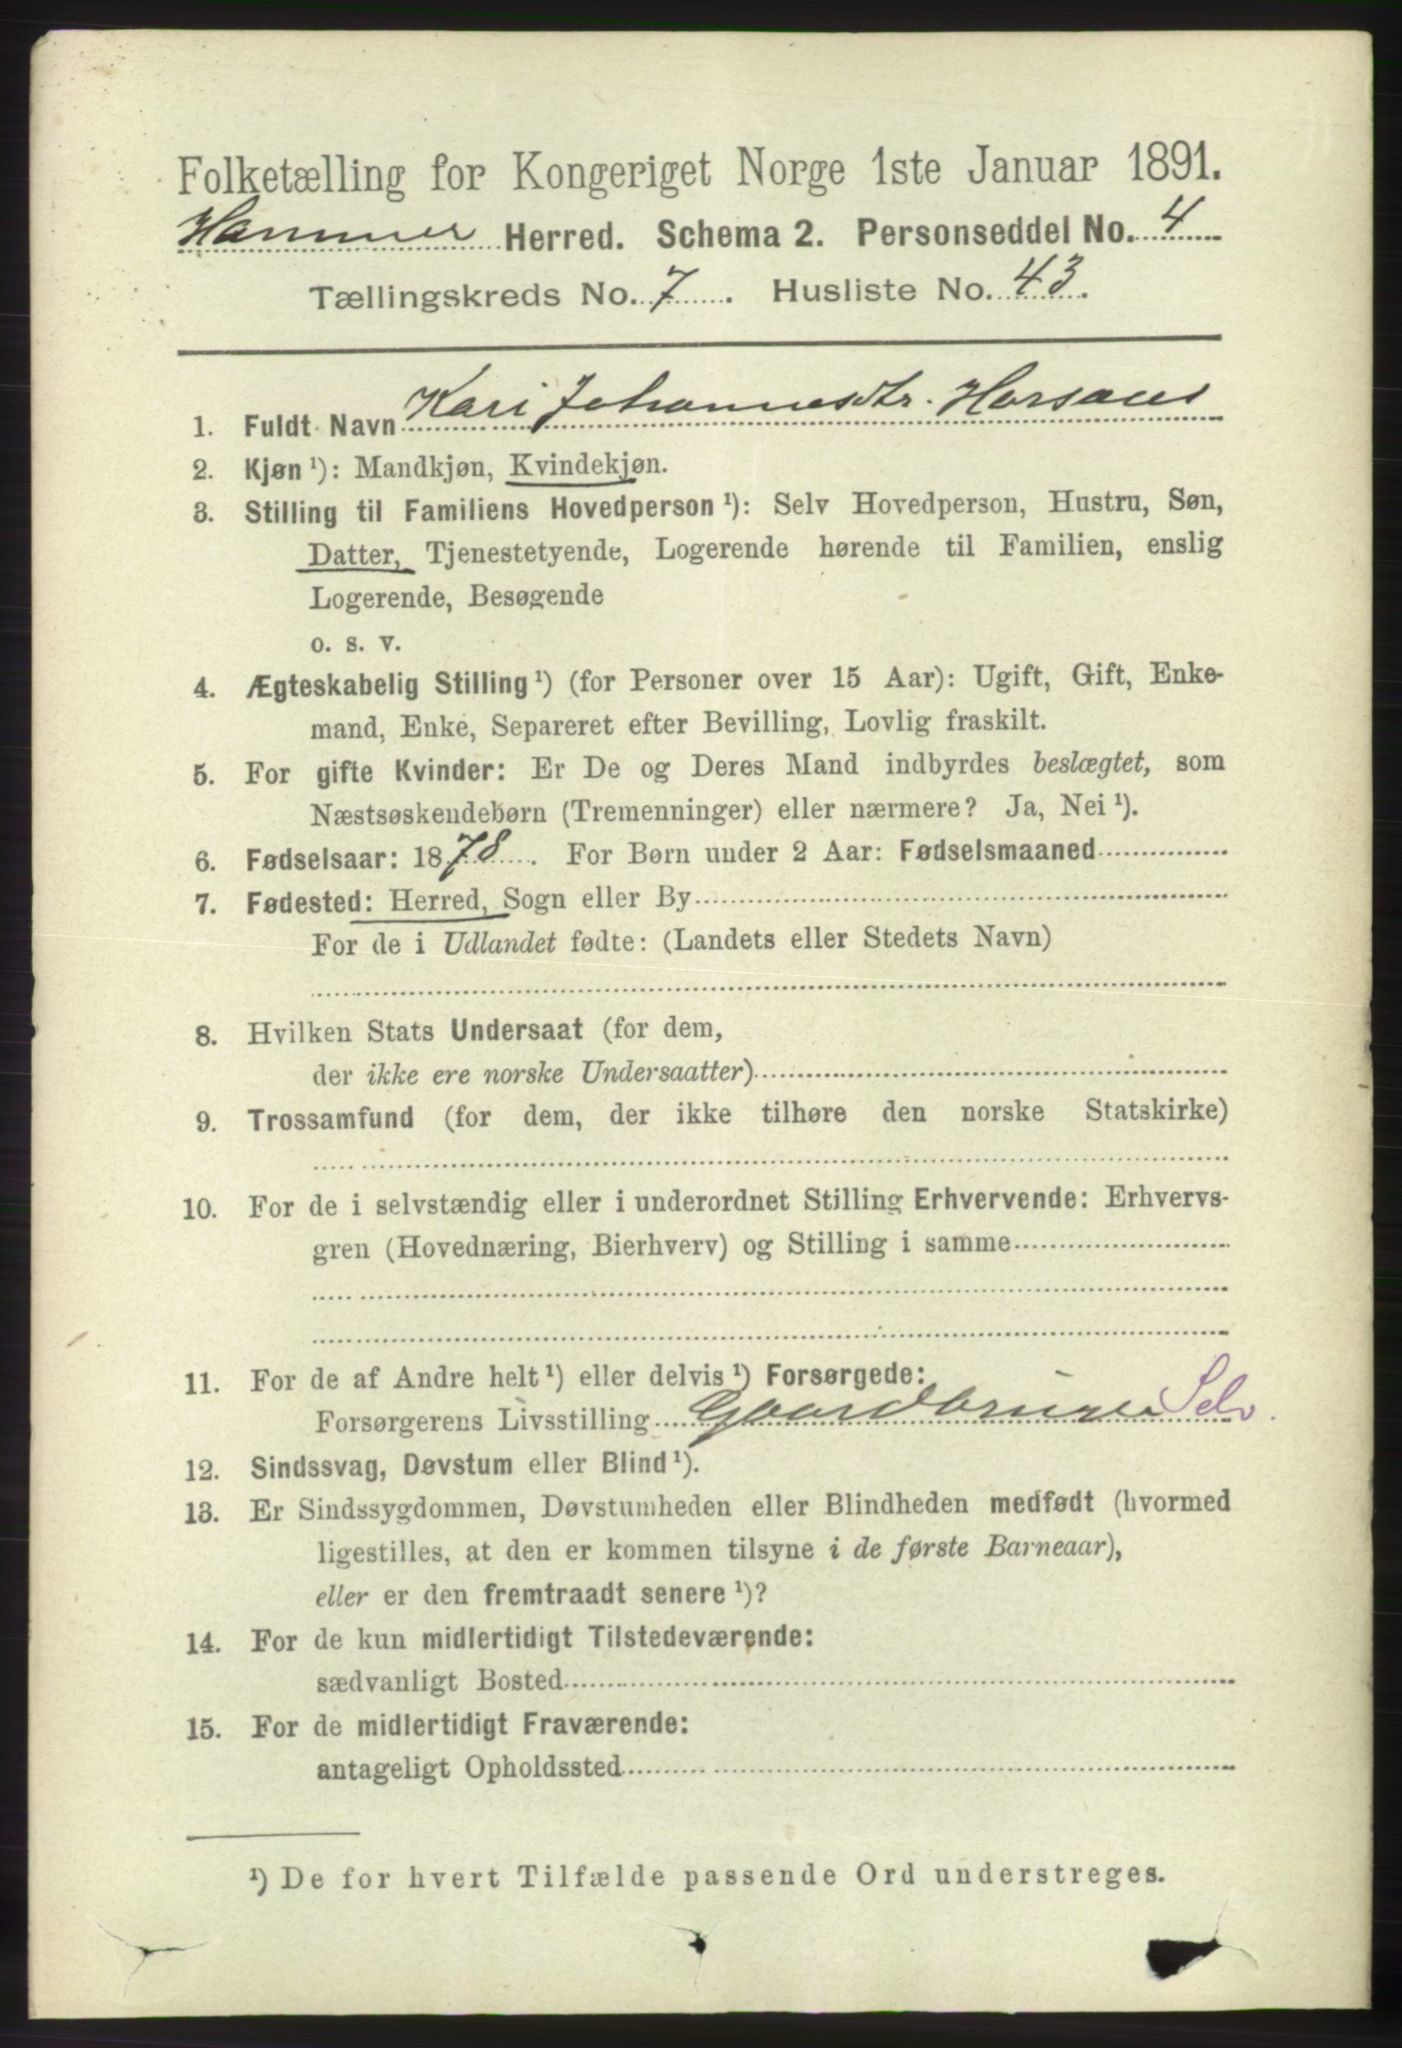 Folketælling for Kongeriget Norge 1ste Januar 1891.
Hammer Herred. Schema 2. Personseddel No. 4
Tællingskreds No. 7. Husliste No. 43.
1. Fuldt Navn Kari Johannesdtr. Horsaas
2. Kjøn ¹): Mandkjøn, Kvindekjøn.
3. Stilling til Familiens Hovedperson ¹): Selv Hovedperson, Hustru, Søn,
Datter, Tjenestetyende, Logerende hørende til Familien, enslig
Logerende, Besøgende
o. s. v.
4. Ægteskabelig Stilling ¹) (for Personer over 15 Aar): Ugift, Gift, Enke-
mand, Enke, Separeret efter Bevilling, Lovlig fraskilt.
5. For gifte Kvinder: Er De og Deres Mand indbyrdes beslægtet, som
Næstsøskendebørn (Tremenninger) eller nærmere? Ja, Nei ¹).
6. Fødselsaar: 1878. For Børn under 2 Aar: Fødselsmaaned
7. Fødested: Herred, Sogn eller By
For de i Udlandet fødte: (Landets eller Stedets Navn)
8. Hvilken Stats Undersaat (for dem,
der ikke ere norske Undersaatter)
9. Trossamfund (for dem, der ikke tilhøre den norske Statskirke)
10. For de i selvstændig eller i underordnet Stilling Erhvervende: Erhvervs-
gren (Hovednæring, Bierhverv) og Stilling i samme
11. For de af Andre helt ¹) eller delvis ¹) Forsørgede:
Forsørgerens Livsstilling Gaardbruger Selv.
12. Sindssvag, Døvstum eller Blind ¹).
13. Er Sindssygdommen, Døvstumheden eller Blindheden medfødt (hvormed
ligestilles, at den er kommen tilsyne i de første Barneaar),
eller er den fremtraadt senere ¹)?
14. For de kun midlertidigt Tilstedeværende:
sædvanligt Bosted
15. For de midlertidigt Fraværende:
antageligt Opholdssted
¹) De for hvert Tilfælde passende Ord understreges.